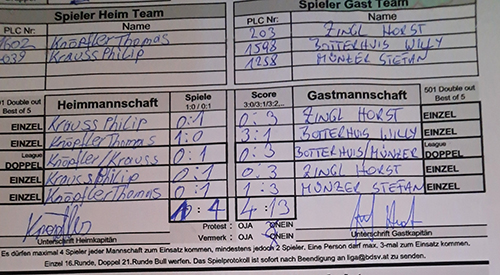 Spieler Heim Team Spieler Gast Team
PLC Nr: Name PLC Nr: Name
1602 Knöpfler Thomas 203 ZINGL HORST
039 Krauss Philip 1598 BOTTERHUIS WILLY
1258 MÜNZER STEFAN
01 Double out Best of 5 Heimmannschaft Spiele 1:0 / 0:1 Score 3:0/3:1/3:2,.. Gastmannschaft 501 Double out Best of 5
EINZEL Krauss Philip 0:1 0:3 ZINGL HORST EINZEL
EINZEL Knöpfler Thomas 1:0 3:1 BOTTERHUIS WILLY EINZEL
League DOPPEL Knöpfler/Krauss 0:1 0:3 BOTTERHUIS/MÜNZER League DOPPEL
EINZEL Krauss Philip 0:1 0:3 ZINGL HORST EINZEL
EINZEL Knöpfler Thomas 0:1 1:3 MÜNZER STEFAN EINZEL
1:4 4:13
Knöpfler
Protest : OJA NEIN
Unterschrift Heimkapitän Vermerk : OJA NEIN Unterschrift Gastkapitän
Es dürfen maximal 4 Spieler jeder Mannschaft zum Einsatz kommen, mindestens jedoch 2 Spieler. Eine Person darf max. 3-mal zum Einsatz kommen.
Einzel 16.Runde, Doppel 21.Runde Bull werfen. Das Spielprotokoll ist sofort nach Beendigung an liga@bdsv.at zu senden.